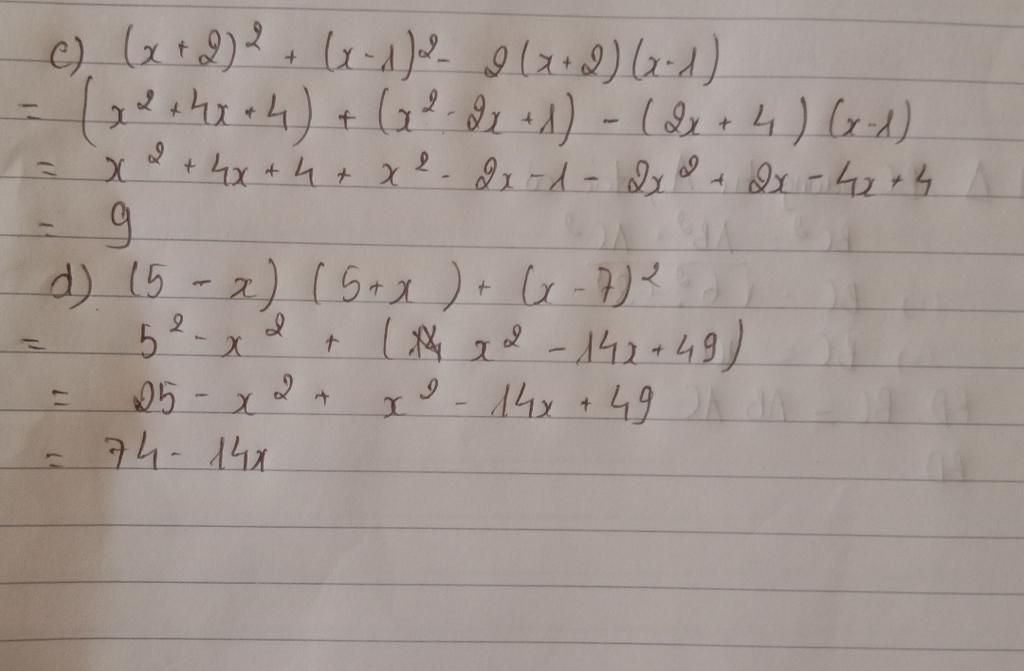 c) (x+2)² + (x-1)² - 2(x+2)(x-1)
= (x² + 4x + 4) + (x² - 2x + 1) - (2x + 4) (x-1)
= x² + 4x + 4 + x² - 2x - 1 - 2x² + 2x - 4x + 4
= 9
d) (5 - x) (5 + x) + (x - 7)²
= 5² - x² + (x² - 14x + 49)
= 25 - x² + x² - 14x + 49
= 74 - 14x